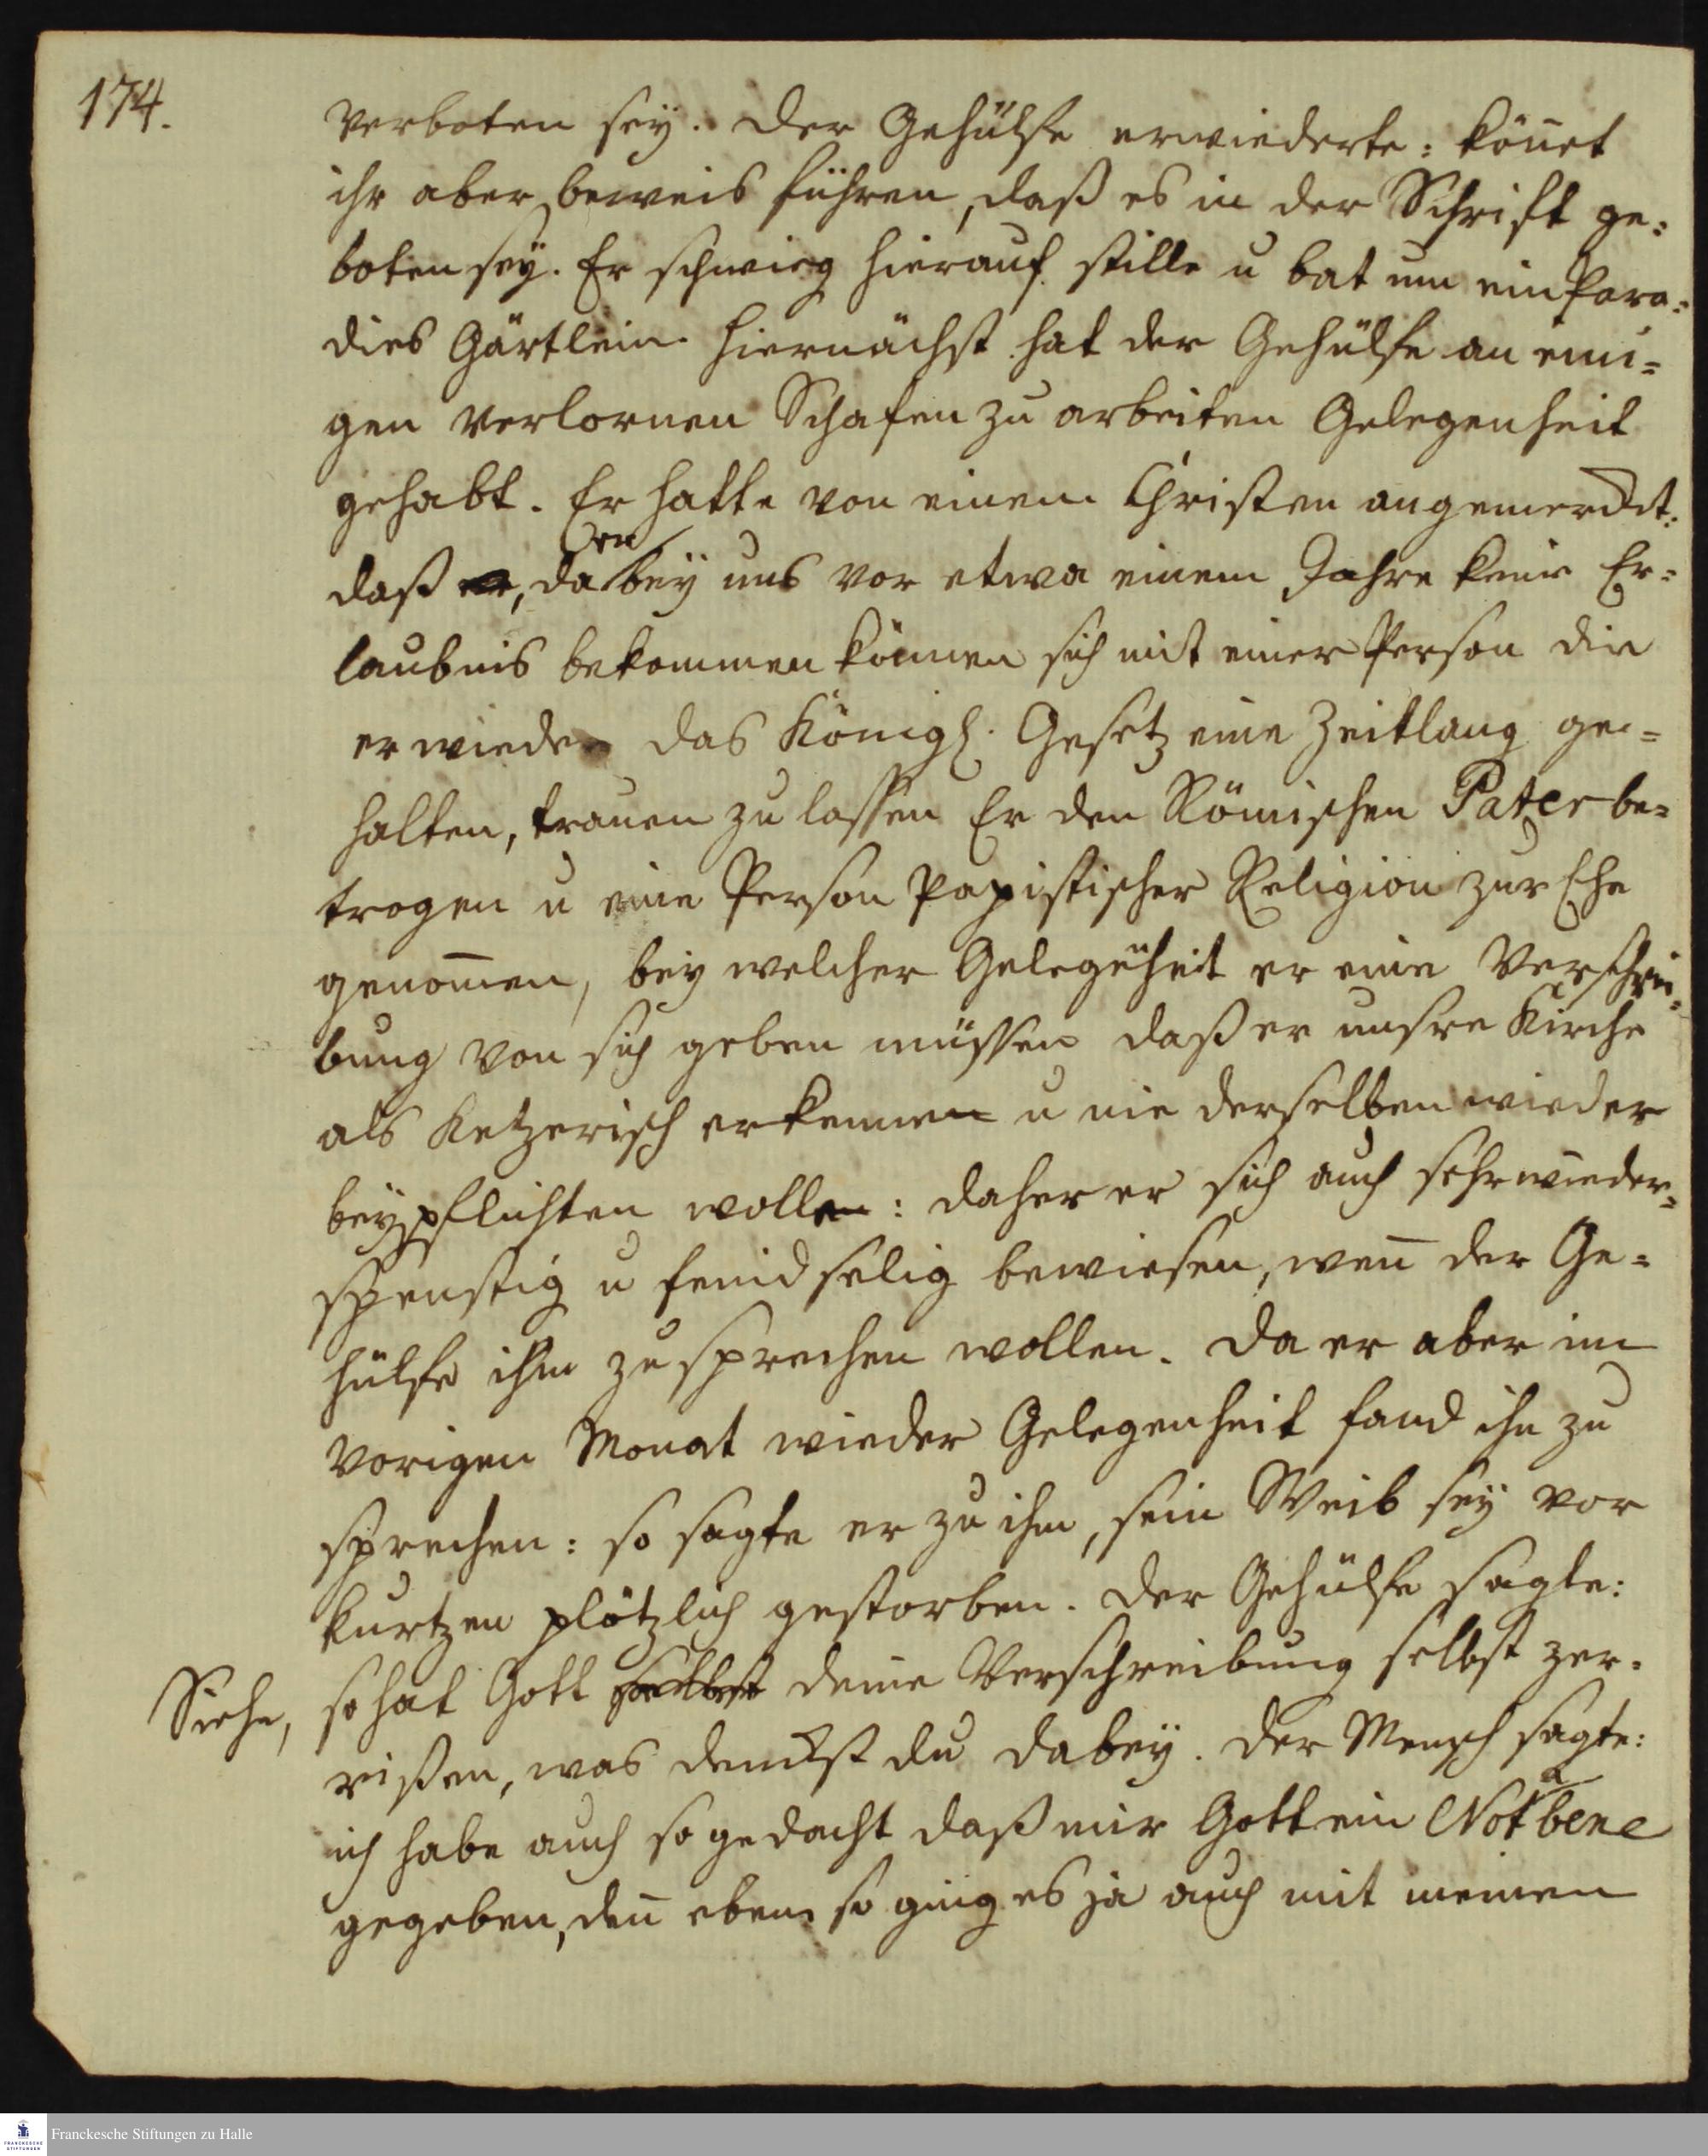 174.
verboten sey. Der Gehülfe erwiederte: kön̄et
ihr aber beweis führen, daß es in der Schrift ge=
boten sey. Er schwieg hierauf stille u bat um ein Para=
dies Gärtlein. Hiernächst hat der Gehülfe an eini=
gen verlornen Schafen zu arbeiten Gelegenheit
gehabt. Er hatte von einem Christen angemerckt:
daß er, da er bey uns vor etwa einem Jahre keine Er=
laubnis bekommen können sich mit einer Person die
er wieder das Königl. Gesetz eine Zeitlang ge=
halten, trauen zu lassen Er den Römischen Pater be=
trogen u eine Person Papistischer Religion zur Ehe
genom̄en, bey welcher Gelegenheit er eine Verschrei=
bung von sich geben müssen daß er unsre Kirche
als Ketzerisch erkennen u nie derselben wieder
beypflichten wollen: daher er sich auch sehr wieder=
spenstig u feindselig bewiesen, wen̄ der Ge=
hülfe ihm zusprechen wollen. Da er aber im
vorigen Monat wieder Gelegenheit fand ihn zu
sprechen: so sagte er zu ihm, sein Weib sey vor
kurtzen plötzlich gestorben. Der Gehülfe sagte:
Siehe, so hat Gott selbst deine Verschreibung selbst zer=
rißen, was denckst du dabey. Der Mensch sagte:
ich habe auch so gedacht daß mir Gott ein Notabene
gegeben, den̄ eben so ging es ja auch mit meinen
Franckesche Stiftungen zu Halle
FRANCKESCHE
STIFTUNGEN